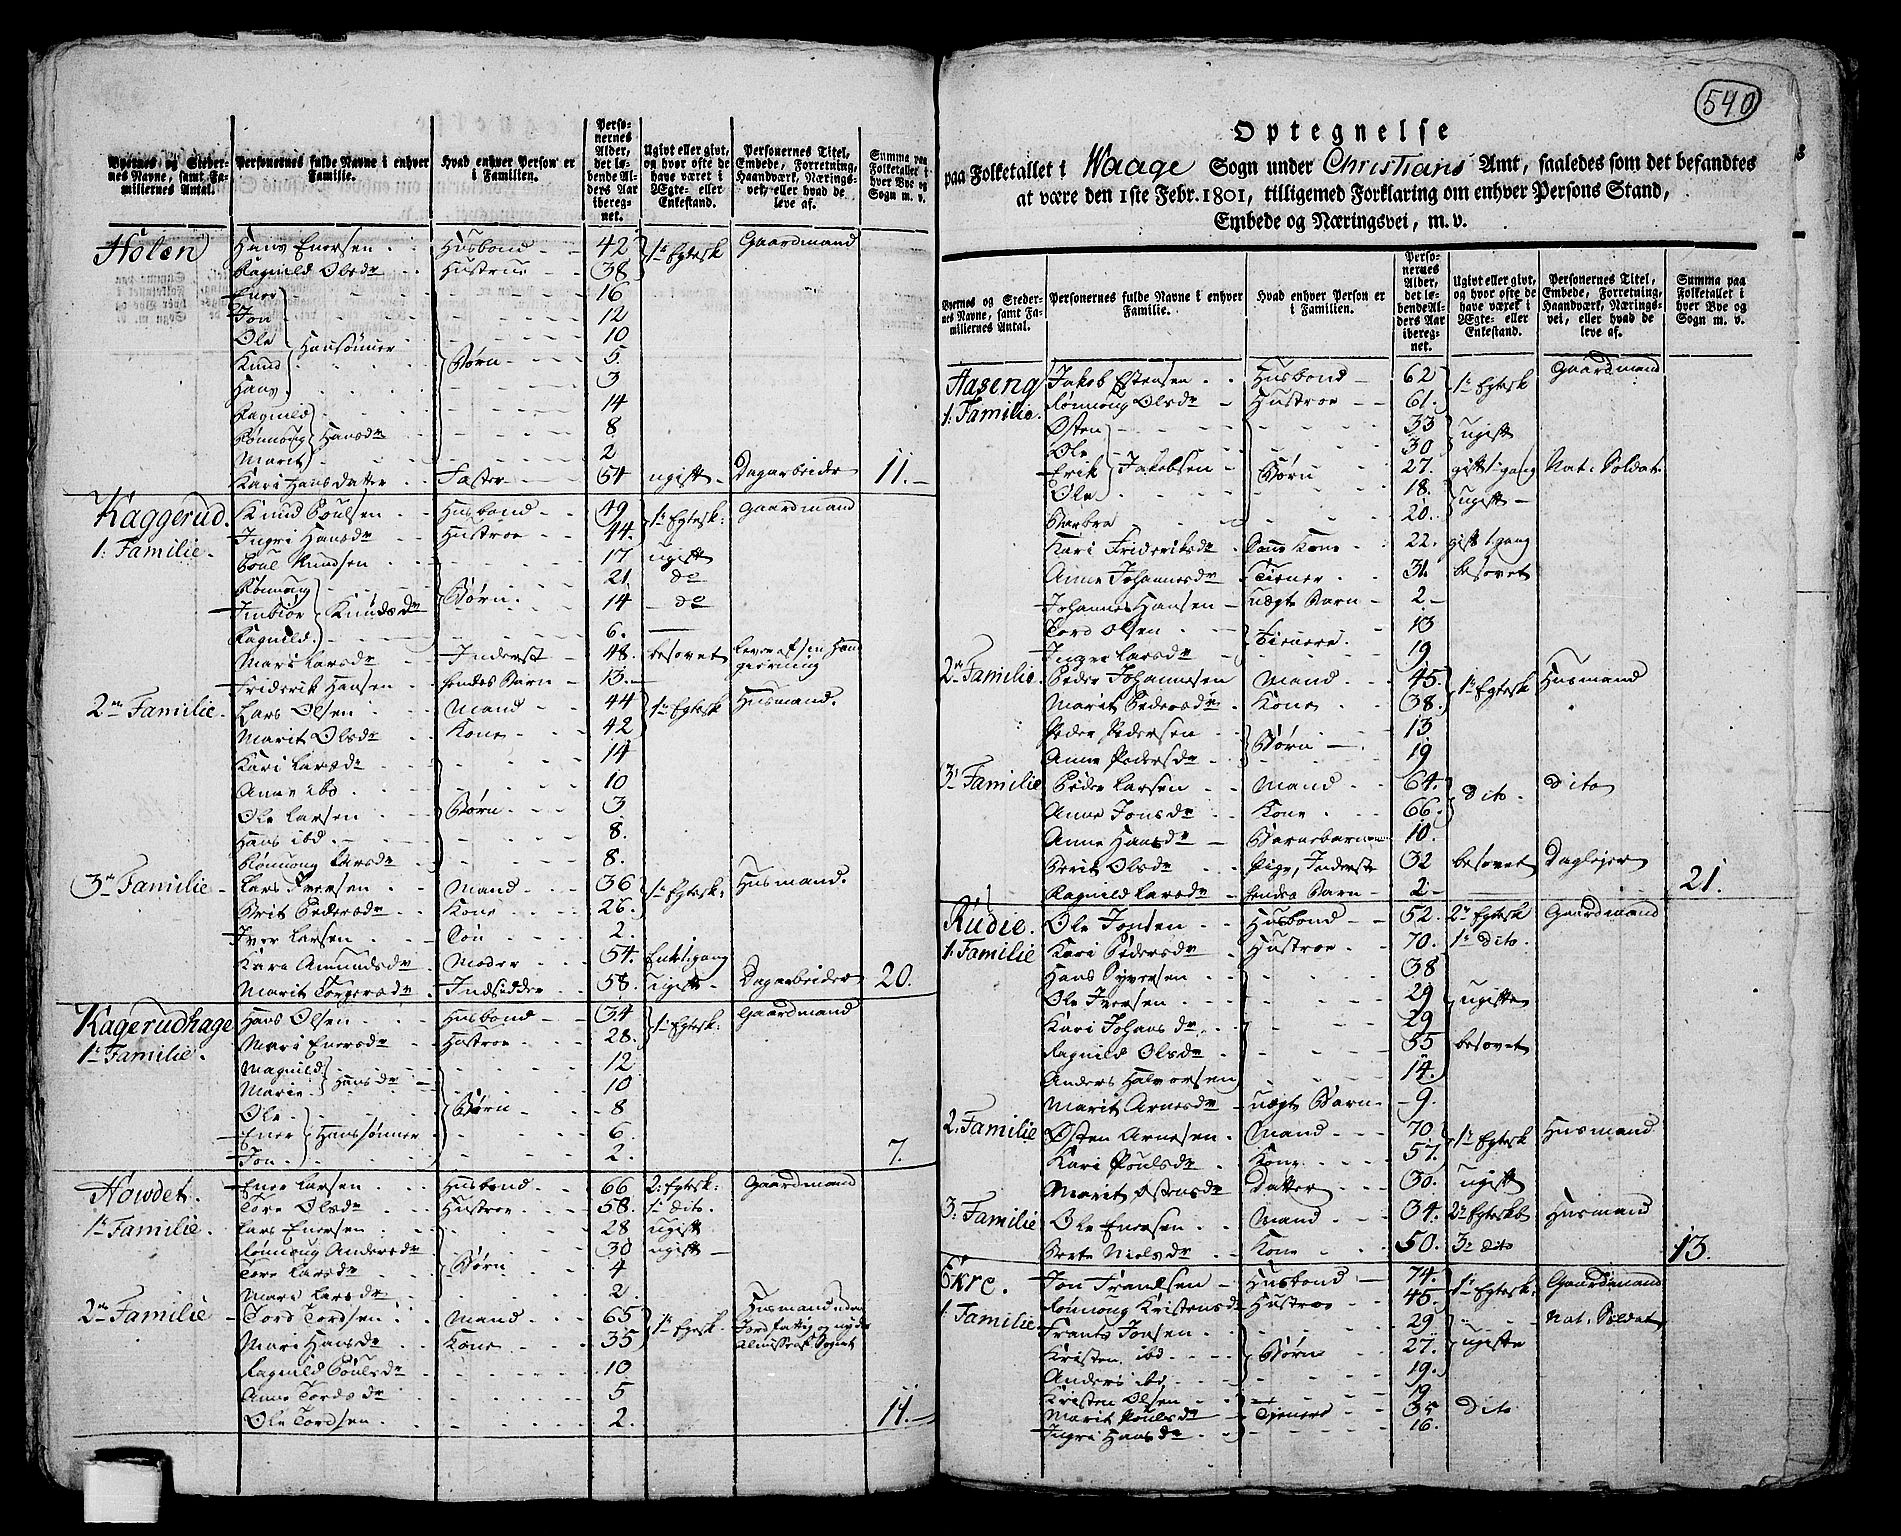 Byernes og Steder-
nes Navne, samt Fa-
miliernes Antal.
Personernes fulde Navne i enhver
Familie.
Hvad enhver Person er
i Familien.
Perso-
nernes
Alder,
det lø-
bende Al-
ders Aar
ibereg-
net.
Ugivt eller givt,
og hvor ofte de
have været i
Ægte- eller
Enkestand.
Personernes Titel,
Embede, Forretning,
Haandværk, Nærings-
vei, eller hvad de
leve af.
Summa paa
Folketallet i
hver Bye og
Sogn m. v.
Holen Hans Enersen Husbond 42 1te Egtesk Gaardmand
Ragnild Olsdr Hustrue 38
Ener 16
Jon 12
Ole Hansønner 10
Knud Børn 5
Hans 3
Ragnild 14
Rønnoug Hansdr 8
Marit 2
Kari Hansdatter Faster 54 ugift Dagarbeide 11.
Kaggerud Knud Poulsen Husbond 49 1te Egtesk: Gaardmand
1: Familie Ingri Hansdr Hustroe 44
Poul Knudsen 17 ugift
Rønnoug 21 do
Imbiør Knudsdr Børn 14 do
Ragnild 6.
Mari Larsdr Inderst 48. besovet lever af sin Haan
gierning
Friderik Hansen hendes Barn 13.
2den Familie Lars Olsen Mand 44 1te Egtesk Husmand.
Marit Olsdr Kone 42
Kari Larsdr 14
Anne ibd 10
Ole Larsen Børn 3
Hans ibd 8.
Rønnoug Larsdr 8.
3die Familie Lars Iversen Mand 36 1te Egtesk: Husmand.
Brit Pedersdr Kone 26.
Iver Larsen Søn 2.
Kari Amundsdr Moder 54. Enke 1 gang
Marit Torgersdr Indsidder 58. ugift Dagarbeider 20.
Kagerudhage Hans Olsen Husbond 34 1te Egtesk: Gaardmand
1te Familie. Mari Enersdr Hustroe 28.
Magnild 12
Marie Hansdr 10
Ole Børn 8
Ener Hanssønner 6.
Jon 2. 7.
Howdet. Ener Larsen Husbond 66 2: Egtesk: Gaardmand
1te Familie Tore Olsdr Hustroe 58. 1: dito.
Lars Enersen 28 ugift
Rønnoug Andersdr 30 ugift
Tore Larsdr Børn 4
Mari Larsdr 2.
2den Familie Tord Tordsen Mand 65 1te Egtesk. Husmand uden
Mari Hansdr Kone 35 Jord fattig og nyder
Almisse af Sognet
Ragnild Poulsdr 10
Anne Tordsdr 5
Ole Tordsen 2. 11.
540
Optegnelse
paa Folketallet i Waage Sogn under Christians Amt, saaledes som det befandtes
at være den 1ste Febr. 1801, tilligemed Forklaring om enhver Persons Stand,
Embede og Næringsvei, m. v.
Byernes og Steder-
nes Navne, samt Fa-
miliernes Antal.
Personernes fulde Navne i enhver
Familie.
Hvad enhver Person er
i Familien.
Perso-
nernes
Alder,
det lø-
bende Al-
ders Aar
ibereg-
net.
Ugivt eller givt,
og hvor ofte de
have været i
Ægte- eller
Enkestand.
Personernes Titel,
Embede, Forretning,
Haandværk, Nærings-
vei, eller hvad de
leve af.
Summa paa
Folketallet i
hver Bye og
Sogn m. v.
Haseng Jakob Estensen Husbond 62 1te Egtesk Gaardmand
1: Familie. Rønnoug Olsdr Hustroe 61.
Østen 33 ugift
Ole 30
Erik Jakobsen Børn 27. gift 1 gang Nat: Soldat
Ole 18. ugift
Barbra 20.
Kari Frideriksdr Sønne Kone 22. gift 1 gang
Anne Johannesdr Tiener 31. besovet
Johannes Hansen uægte Barn 2
Tord Olsen Tienere 13
Inger Larsdr 19
2den Familie. Peder Johannesen Mand 45. 1te Egtesk Husmand
Marit Pedersdr Kone 38.
Peder Pedersen Børn 13
Anne Pedersdr 19
3: Familie Peder Larsen Mand 64. dito. dito
Anne Jonsdr Kone 66.
Anne Hansdr Barnebarn 10.
Berit Olsdr Pige, Inderste 32 besovet Daglejer
Ragnild Larsdr hendes Barn 2 21.
Rudie. Ole Jonsen Husbond 52. 2den Egtesk Gaardmand
1. Familie Kari Pedersdr Hustroe 70. 1te dito.
Hans Syversen 38
Ole Iversen 29 ugifte
Kari Johansdr 29
Ragnild Olsdr 35 besovet
Anders Halvorsen 14.
Marit Arnesdr uægte Barn 9.
2. Familie Østen Arnesen Mand 70. 1te Egtesk Husmand
Kari Poulsdr Kone 57.
Marit Østensdr Datter 30. ugift
3: Familie Ole Enersen Mand 34. 2den Egtesk Husmand
Berte Nielsdr Kone 50. 3die dito 13.
Ekre. Jon Frandsen Husbond 74. 1te Egtesk: Gaardmand
1 Familie Rønnoug Kristensdr Hustroe 45.
Frants Jonsen 29 Nat. Soldat
Kristen ibd Børn 27. ugifte
Anders ibd 19.
Kristen Olsen 19
Marit Poulsdr Tjenere 35 dito
Ingri Hansdr 16.